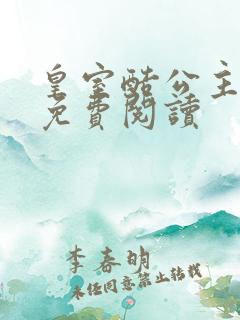 皇室酷公主
免費閱讀
李春明
未经同意禁止转载